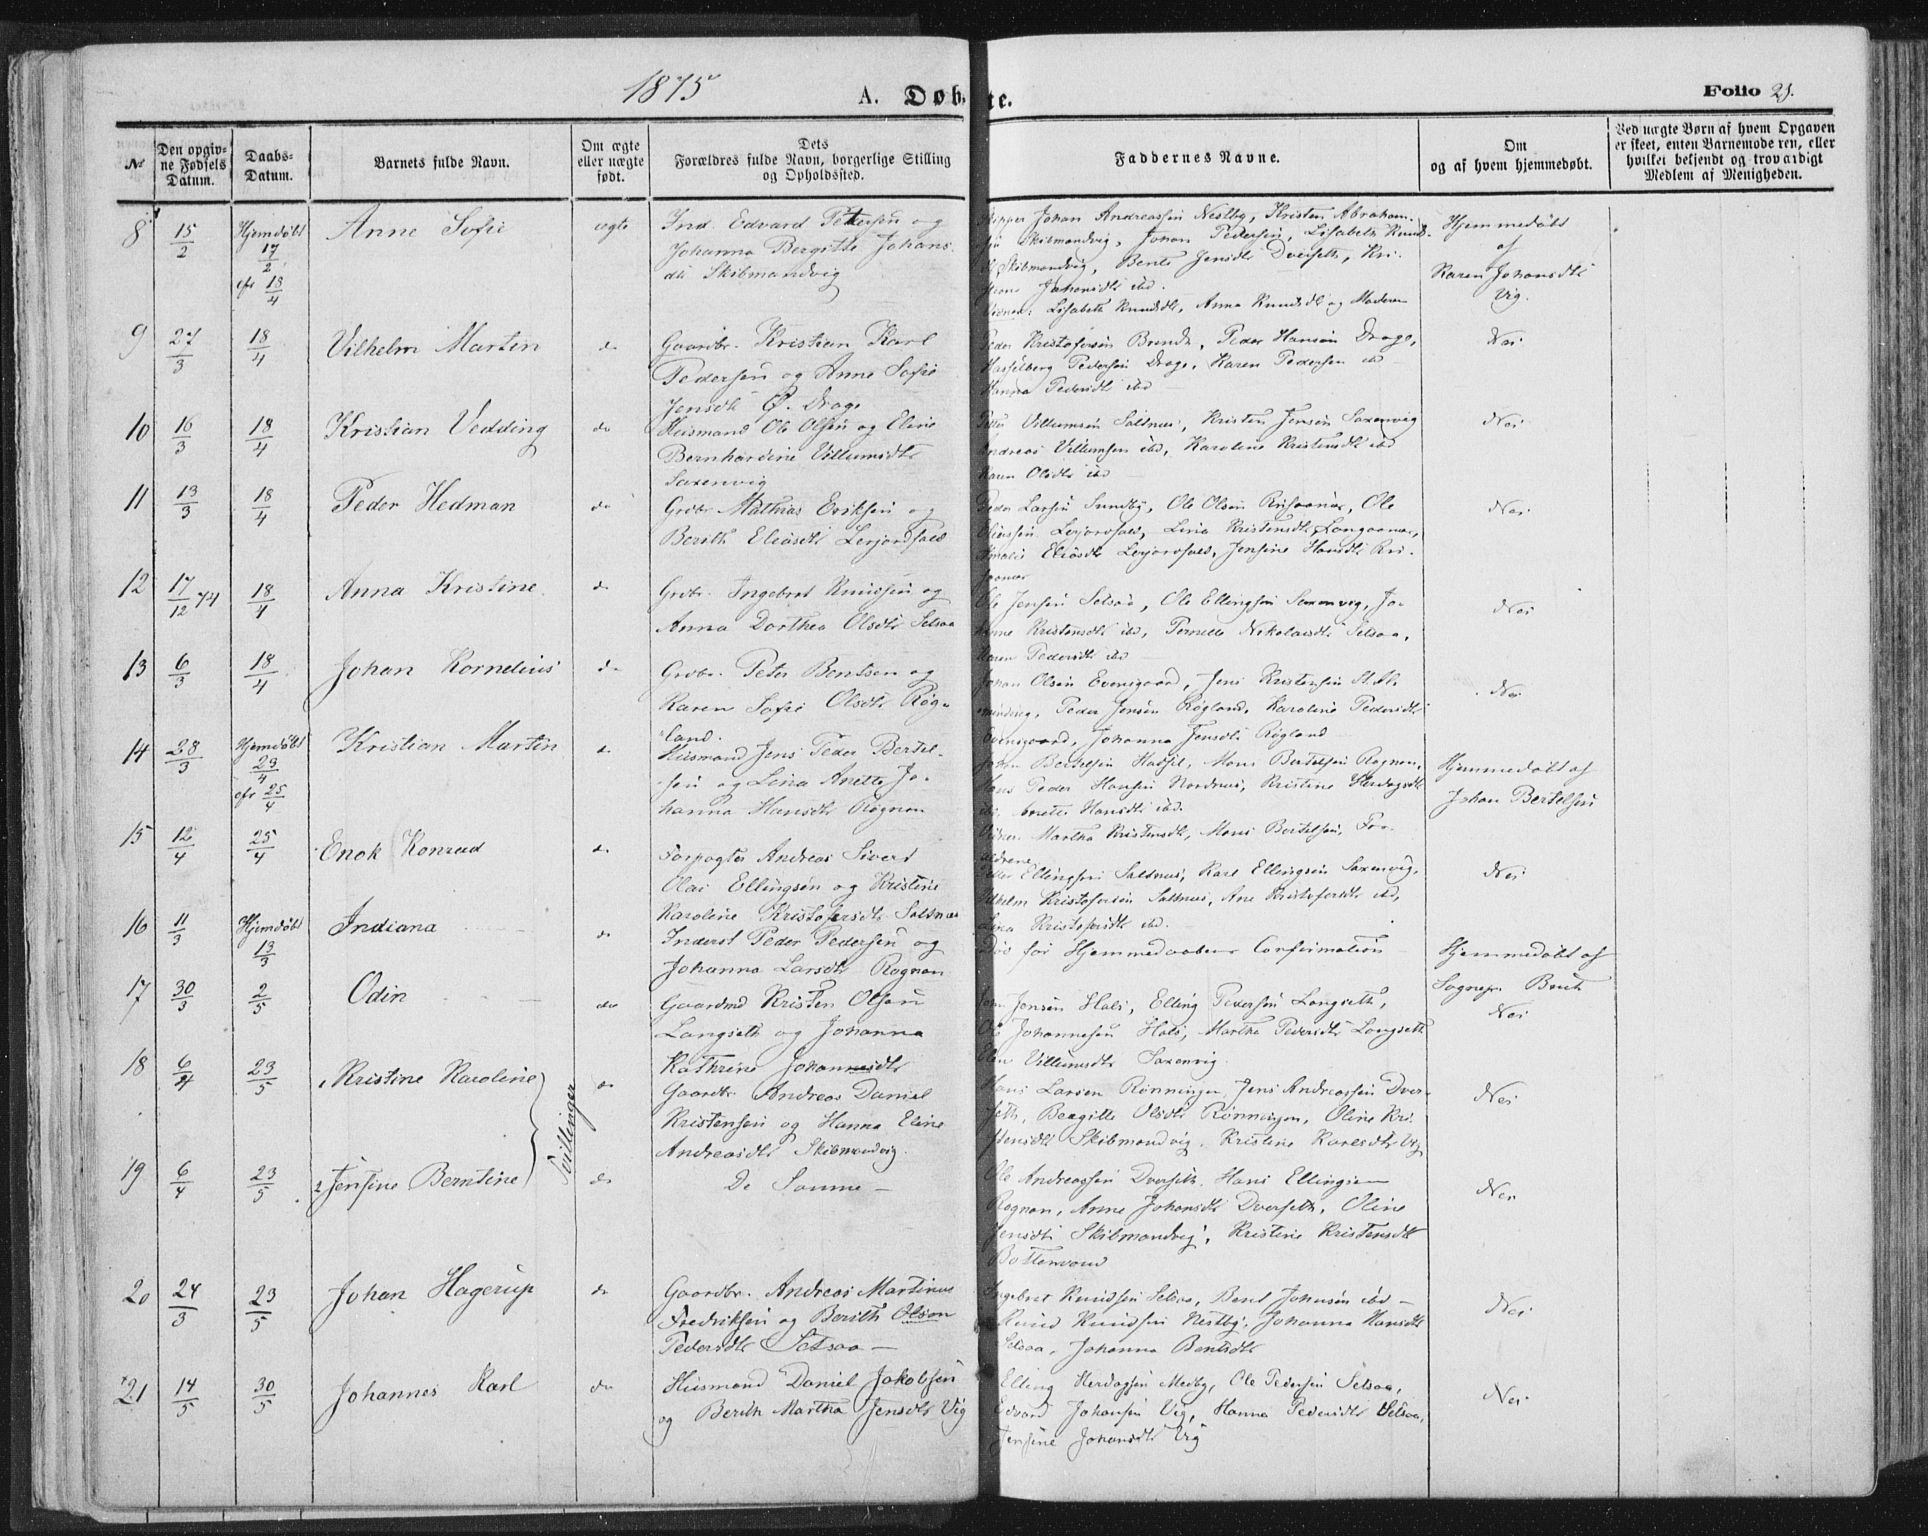 1875
A. Døbte.
Folio 21.
№
Den opgivne Fødsels Datum.
Daabs-Datum.
Barnets fulde Navn.
Om ægte eller uægte født.
Dets Forældres fulde Navn, borgerlige Stilling og Opholdssted.
Faddernes Navne.
Om og af hvem hjemmedøbt.
Ved uægte Børn af hvem Opgaven er skeet, enten Barnemoderen, eller hvilket bekjendt og troværdigt Medlem af Menigheden.
8 15/2 Hjemdøbt 17/2 18/4 Anne Sofie ægte
Ind. Edvard Petersen og
Johanna Bergitte Johans
dtr Skibmandvig
Skipper Johan Andreassen Nestby, Kristen Abraham-
sen Skibmandvig, Johan Pedersen, Lisabeth Knuds-
dt Skibmandvig, Bente Jensdtr Dverseth, Kri-
Johansdtr ibd.
Vidner: Lisabeth Knudsdtr, Anna Knudsdtr og Moderen
Hjemmedøbt
af
Karen Johansdtr
Vig.
9 27/3 18/4 Vilhelm Martin do
Gaardbr. Kristian Karl
Pedersen og Anne Sofie
Jensdtr Ø. Drage
Peder Kristofersen Brenda, Peder Hansen Drage,
Hasselberg Pedersen Drage, Karen Pedersen ibd
Hanna Pedersdtr ibd
Nei
10 16/3 18/4 Kristian Vedding do
Husmand Ole Olsen og Eline
Bernhardine Villumsdtr
Saxenvig
Peder Villumsen Saltnes, Kristen Jensen Saxenvig
Andreas Villumsen ibd, Karoline Kristensdtr ibd
Karen Olsdtr ibd
Nei
11 13/3 18/4 Peder Hedman do
Grdbr. Mathias Eriksen og
Berith Eliasdtr Lerjordfald
Peder Larsen Sundby, Ole Olsen Rusaanes, Ole
Eliassen Lejordfald, Lina Kristensdtr Langaanes,
Amalie Eliasdtr Lejordfald, Jensine Hansdtr Ru-
saanes
Nei
12 17/12 74 18/4 Anna Kristine do
Grdbr. Ingebret Knudsen og
Anna Dorthea Olsdtr Setsaa
Ole Jensen Setsaa, Ole Ellingsen Saxenvig, Jo-
hanne Kristensdtr ibd, Pernelle Nikolaisdtr Setsaa,
Karen Pedersdtr ibd
Nei
13 6/3 18/4 Johan Kornelius do
Grdbr. Peter Bentsen og
Karen Sofie Olsdtr Røg-
land.
Johan Olsen Evensgaard, Jens Kristensen Skib-
mandvig, Peder Jensen Røgland, Karoline Pedersdtr
Evensgaard, Johanna Jensdtr Røgland
Nei
14 28/3 Hjemdøbt 23/4 25/4 Kristian Martin do
Husmand Jens Peder Bertel-
sen og Lina Anette Jo-
hanna Hansdtr Rognan
Johan Bertelsen Hassel, Mons Bertelsen Rognan,
Hans Peder Hansen Nordnes, Kristine Herdagsdtr
ibd, Anette Hansdtr ibd.
Vidner: Martha Kristensdtr, Mons Bertelsen, For-
ældrene
Hjemmedøbt af
Johan Bertelsen
15 12/4 25/4 Enok Konrad do
Forpagter Andreas Sivert
Olai Ellingsen og Kristine
Karoline Kristofersdtr Saltnes
Peder Ellingsen Saltnes, Karl Ellingsen Saxenvig,
Vilhelm Kristofersen Saltnes, Ane Kristofersdtr ibd,
Lina Kristofersdtr ibd.
Nei
16 11/3 Hjemdøbt 13/3 Indiana do
Inderst Peder Pedersen og
Johanna Larsdtr Rognan
Død før Hjemmedaabens Confirmation
Hjemmedøbt af
Sognepr. Buch
17 30/3 2/5 Odin do
Gaardmd Kristen Olsen
Langseth og Johanna
Kathrine Johannesdtr
Jensen Hals, Elling Pedersen Langseth,
Ole Johannesen Hals, Martha Pedersdtr Langseth
Elen Villumsdtr Saxenvig
Nei
18 6/4 23/5 1, Kristine Karoline Tvillinger do
Gaardbr Andreas Daniel
Kristensen og Hanna Eline
Andreasdtr Skibmandvig.
Hans Larsen Rønningen, Jens Andreassen Dver-
seth, Bergitte Olsdtr Rønningen, Oline Kri-
stensdtr Skibmandvig, Kristine Karlsdtr Vig
Nei
19 6/4 23/5 2 Jensine Berntine do
De Samme —
Ole Andreassen Dverseth, Hans Ellingsen
Rognan, Anne Johansdtr Dverseth, Oline
Jensdtr Skibmandvig, Kristine Kristensdtr
Bottenvand
Nei
20 24/3 23/5 Johan Hagerup do
Gaardbr. Andreas Martinus
Fredriksen og Berith Olson
Pedersdtr Setsaa —
Ingebret Knudsen Setsaa, Bent Johnsen ibd —
Knud Knudsen Nestby, Johanna Hansdtr
Setsaa, Johanna Bentsdtr
Nei
21 14/5 30/5 Johannes Karl do
Husmand Daniel Jakobsen
og Berith Martha Jensdtr Vig
Elling Herdagsen Medby, Ole Pedersen Setsaa,
Edvard Johansen Vig, Hanna Pedersdtr Setsaa,
Jensine Johansdtr Vig
Nei